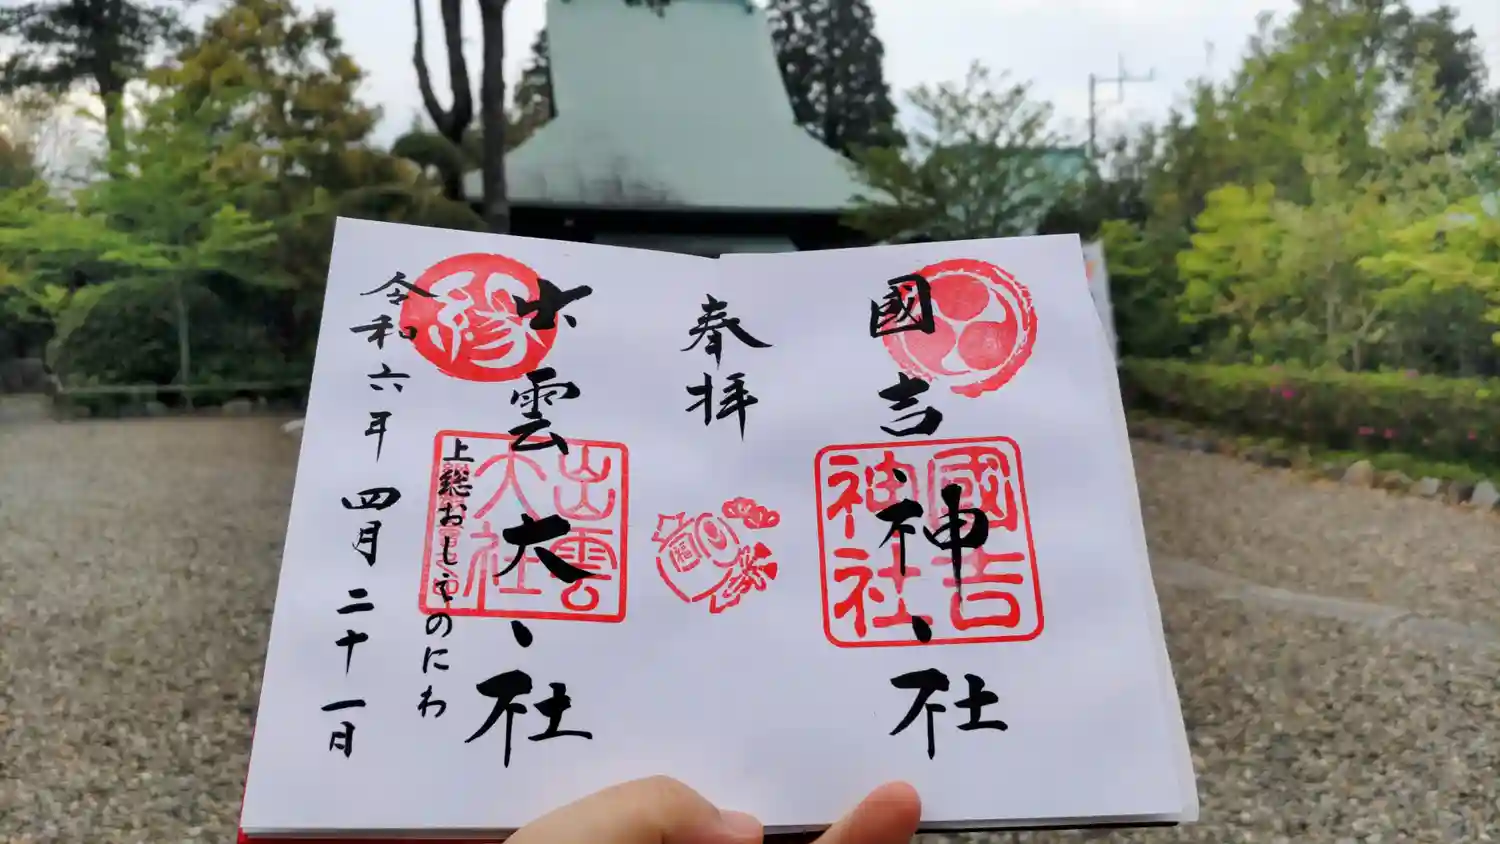 國吉神社
國吉神社
奉拝
福
出雲大社
縁
出雲大社
上総おしゑのにわ
令和六年四月二十一日